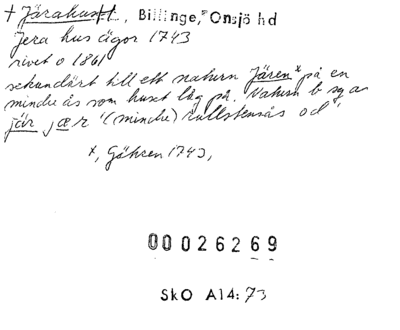 † Järahuset, Billinge, Onsjö hd
Jera hus ägor 1743
rivet o 1861
sekundärt till ett naturn Jären* på en
mindre ås som huset låg på. Naturn b sg av
jär jær '(mindre) rullstensås od'
*, Göhsen 1743,
00026269
SkO A14:73